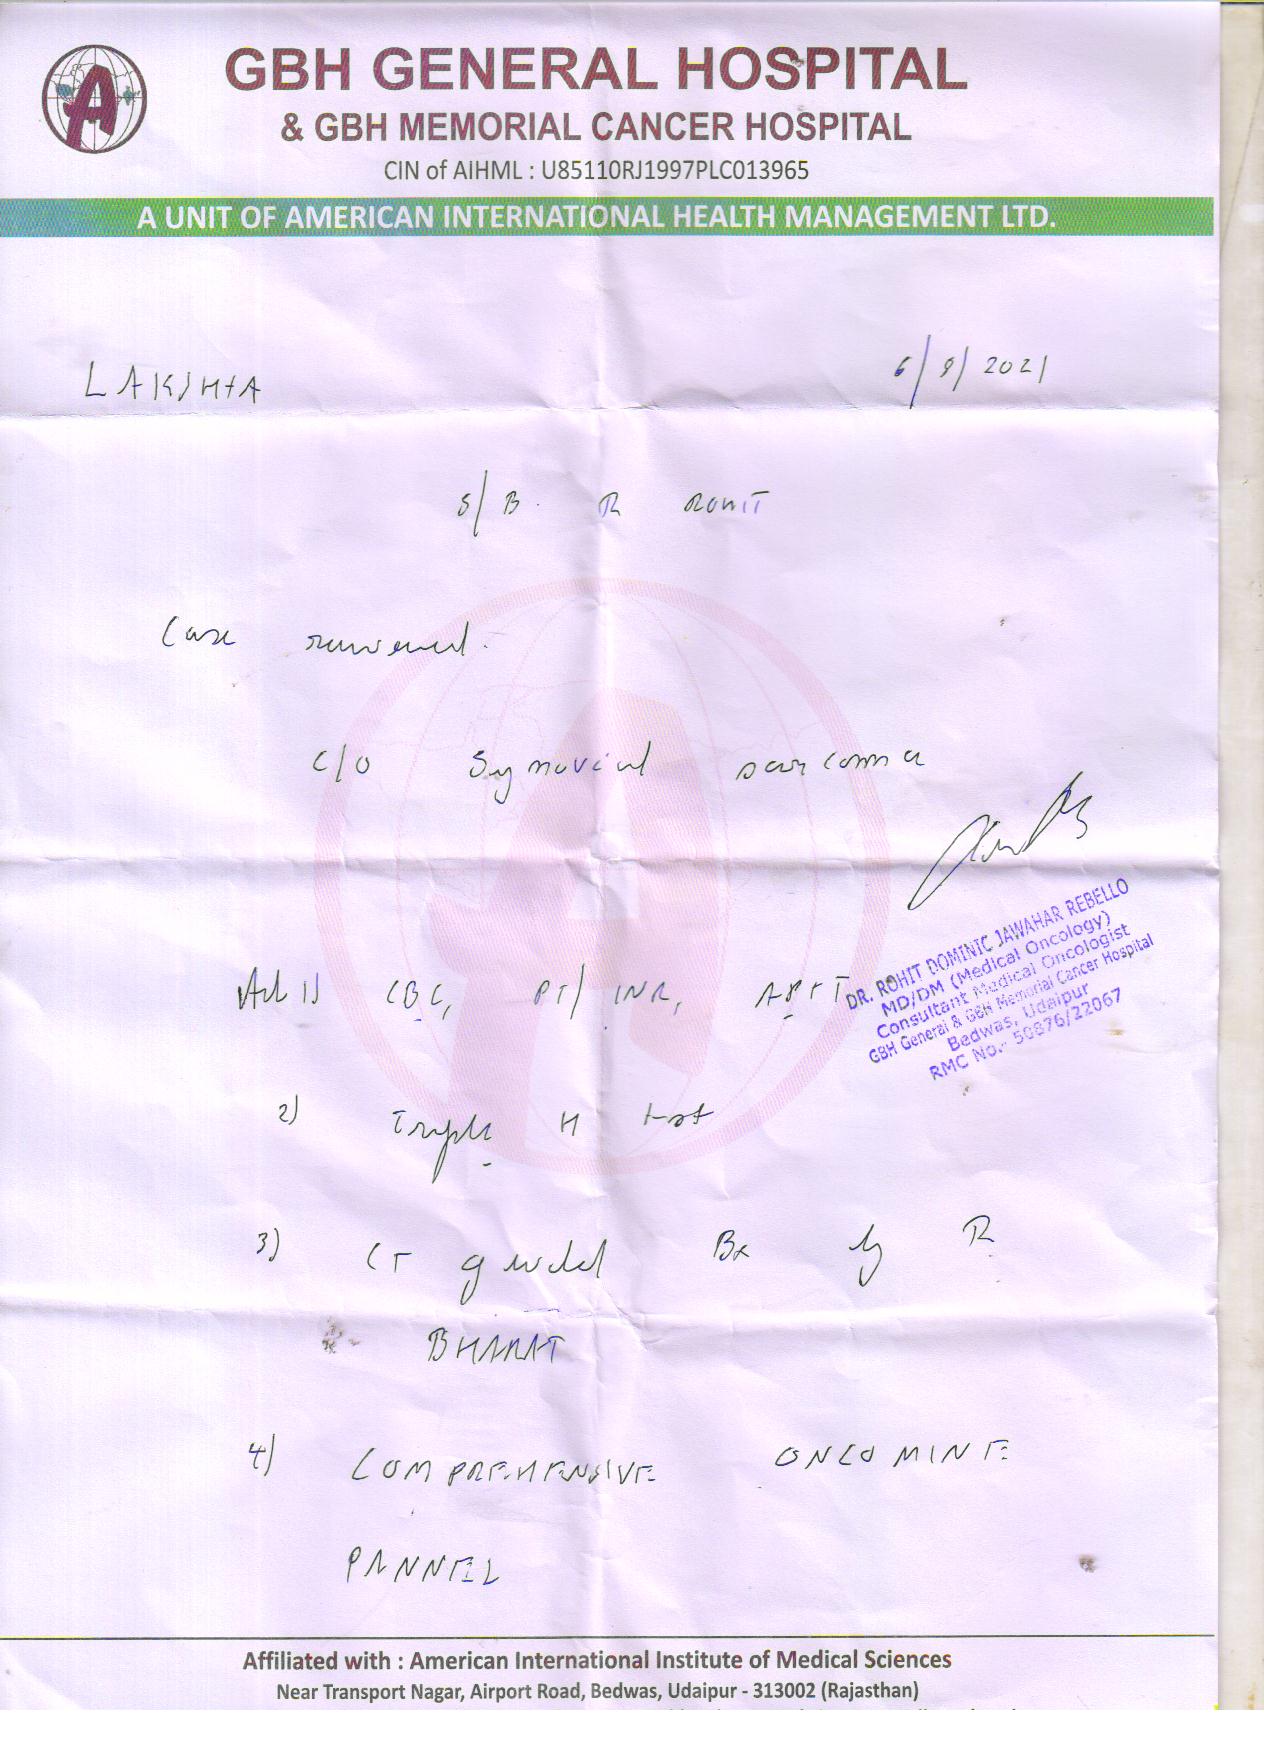 GBH GENERAL HOSPITAL
& GBH MEMORIAL CANCER HOSPITAL
CIN of AIHML : U85110RJ1997PLC013965
A UNIT OF AMERICAN INTERNATIONAL HEALTH MANAGEMENT LTD.
6/9/2021
LAKSHTA
S/B. R ROHIT
Case reviewed.
C/O Synovial sarcoma
DR. ROHIT DOMINIC JAWAHAR REBELLO
MD/DM (Medical Oncology)
Consultant Medical Oncologist
GBH General & GBH Memorial Cancer Hospital
Bedwas, Udaipur
RMC No.- 50876/22067
Adv 1) CBC, PT/INR, APTT
2) Triple H test
3) CT guided Bx by R
BHARAT
4) COMPREHENSIVE ONCOMINE
PANNEL
Affiliated with : American International Institute of Medical Sciences
Near Transport Nagar, Airport Road, Bedwas, Udaipur - 313002 (Rajasthan)